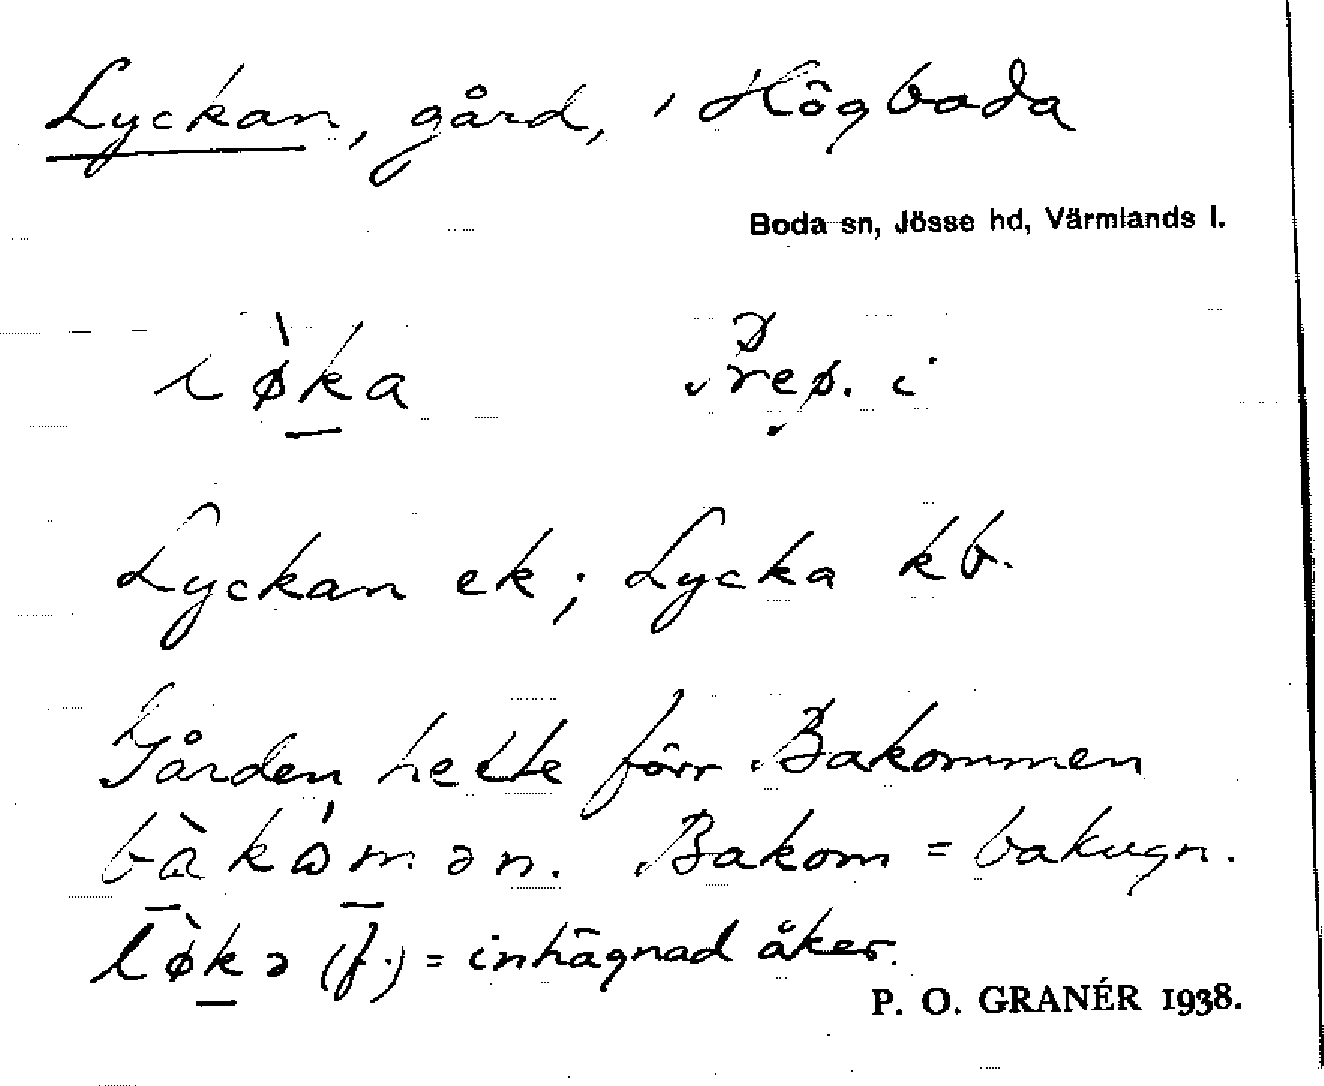 Lyckan, gård, i Högboda
Boda sn, Jösse hd, Värmlands l.
lø̀ka Prep. i
Lyckan ek; Lycka kb.
Gården hette förr Bakommen
bàkómən. Bakom = bakugn.
lø̀kə (f.) = inhägnad åker.
P. O. GRANÉR 1938.